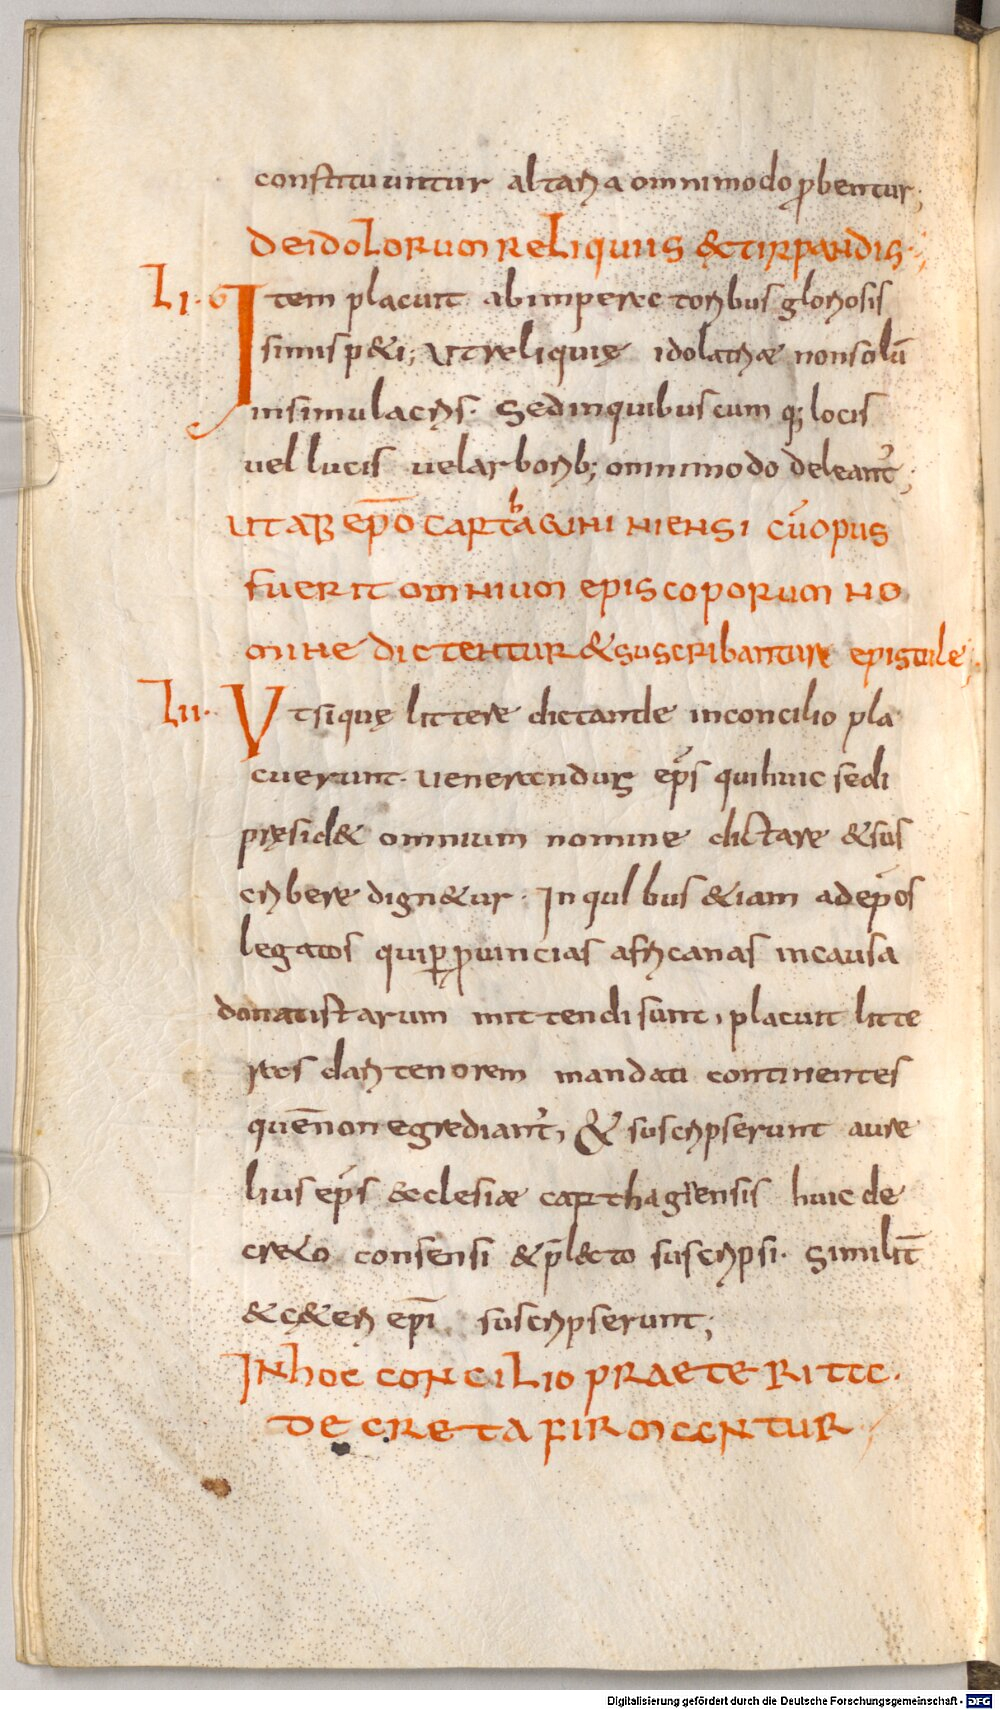 constituuntur altaria omnimodo ꝓbentur;
DE IDOLORUM RELIQUIIS &TIRPANDIS.
LI. Item placuit ab imperatoribus gloriosis
simis p&i; Ut reliquię idolatriæ non solū
in simulacris. Sed in quibuscumq; locis
uel lucis uel arborib; omnimodo deleant᷑;
UT AB EP̄O CARTHAGINI NIENSI CŪ OPUS
FUERIT OMNIUM EPISCOPORUM NO
MINE DICTENTUR & SUSCRIBANTURE EPISTULE.
LII. Ut siquę littere dictande in concilio pla
cuerunt. Uenerandus ep̄s qui huic sedi
pręsid& omnium nomine dictare & sus
cribere dign&ur. In quibus &iam ad ep̄os
legatos qui ꝑ ꝓuincias africanas in causa
donatistarum mittendi sunt, placuit litte
ras dari tenorem mandati continentes
quē non egrediant᷑, & suscripserunt aure
lius ep̄s æcclesiæ carthagiensis huic de
cr&o consensi & p̄l&cto suscripsi. Similit̄
& c&eri ep̄i suscripserunt;
IN HOC CONCILIO PRAETERITIC.
DECRETA FIRMENTUR
Digitalisierung gefördert durch die Deutsche Forschungsgemeinschaft - DFG